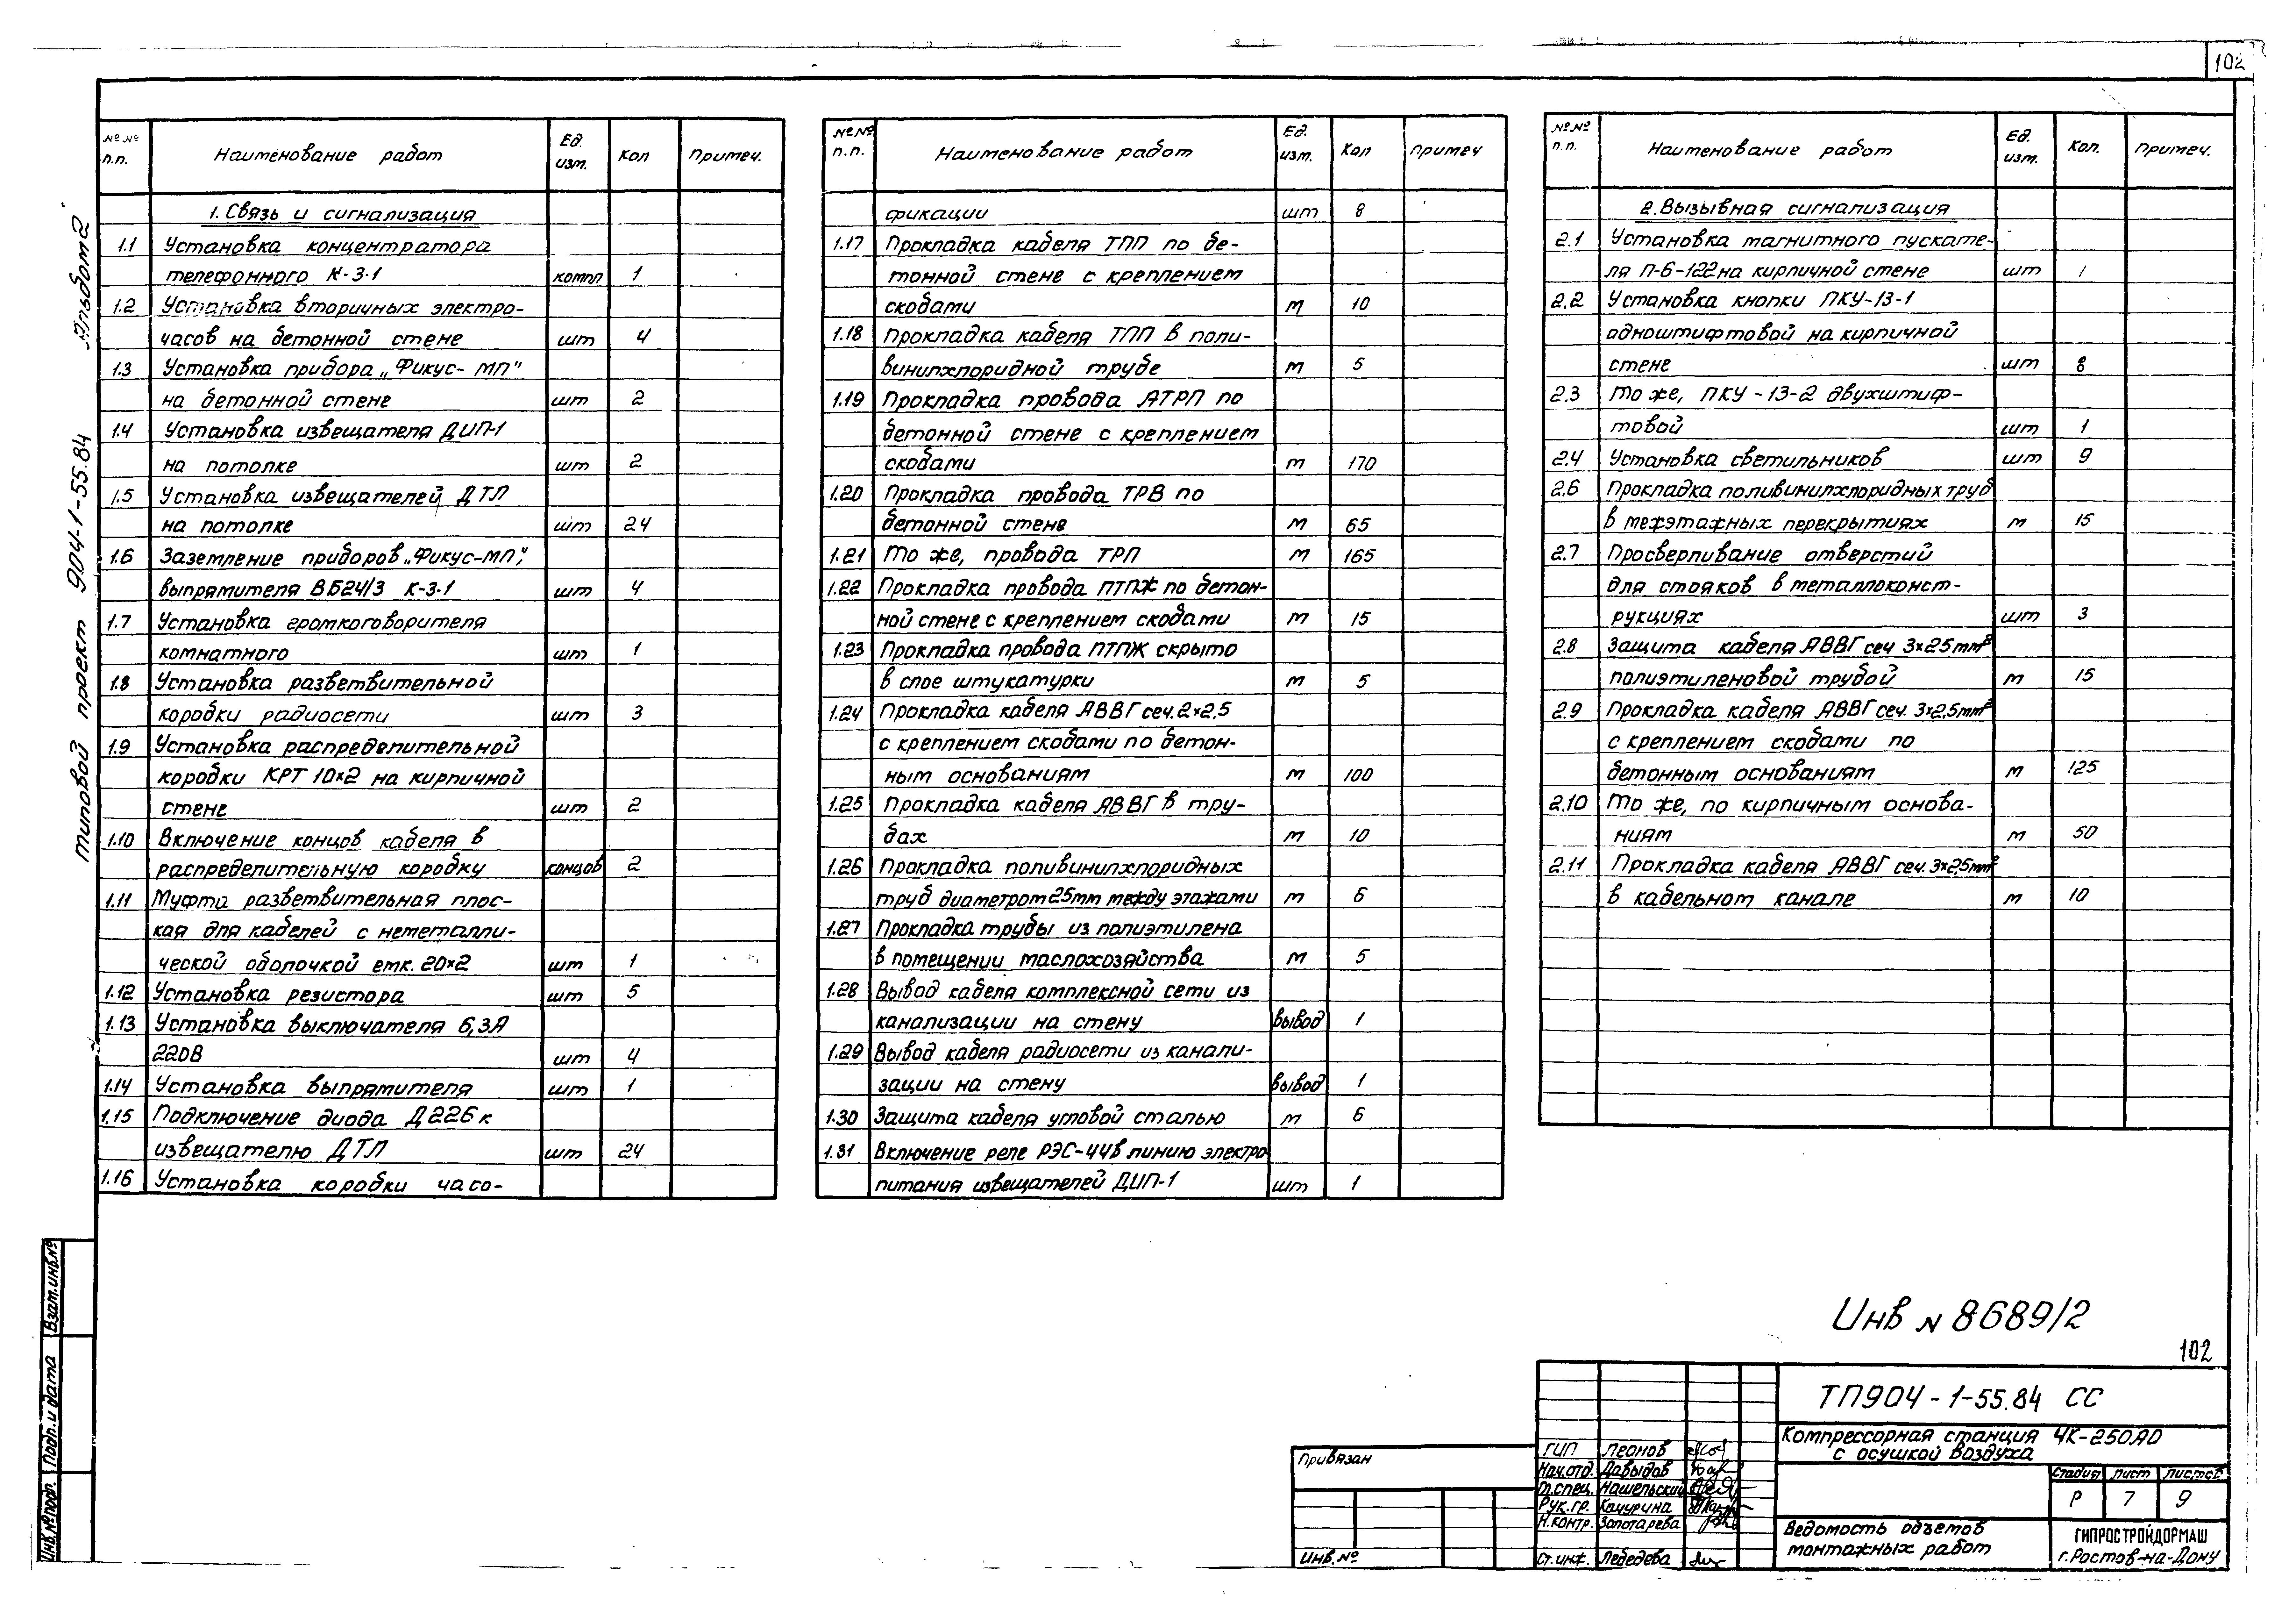 102
Альбом 2
типовой проект 904-1-55.84
№№ п.п. Наименование работ Ед. изм. Кол Примеч.
1. Связь и сигнализация
1.1 Установка концентратора
телефонного К-3-1 компл 1
1.2 Установка вторичных электро-
часов на бетонной стене шт 4
1.3 Установка прибора „Фикус-МП"
на бетонной стене шт 2
1.4 Установка извещателя ДИП-1
на потолке шт 2
1.5 Установка извещателей ДТЛ
на потолке шт 24
1.6 Заземление приборов „Фикус-МП",
выпрямителя ВБ24/3 К-3-1 шт 4
1.7 Установка громкоговорителя
комнатного шт 1
1.8 Установка разветвительной
коробки радиосети шт 3
1.9 Установка распределительной
коробки КРТ 10×2 на кирпичной
стене шт 2
1.10 Включение концов кабеля в
распределительную коробку концов 2
1.11 Муфта разветвительная плос-
кая для кабелей с неметалли-
ческой оболочкой емк. 20×2 шт 1
1.12 Установка резистора шт 5
1.13 Установка выключателя 6,3А
220В шт 4
1.14 Установка выпрямителя шт 1
1.15 Подключение диода Д226 к
извещателю ДТЛ шт 24
1.16 Установка коробки часо-
№№ п.п. Наименование работ Ед. изм. Кол Примеч
фикации шт 8
1.17 Прокладка кабеля ТПП по бе-
тонной стене с креплением
скобами м 10
1.18 Прокладка кабеля ТПП в поли-
винилхлоридной трубе м 5
1.19 Прокладка провода АТРП по
бетонной стене с креплением
скобами м 170
1.20 Прокладка провода ТРВ по
бетонной стене м 65
1.21 То же, провода ТРП м 165
1.22 Прокладка провода ПТПЖ по бетон-
ной стене с креплением скобами м 15
1.23 Прокладка провода ПТПЖ скрыто
в слое штукатурки м 5
1.24 Прокладка кабеля АВВГ сеч. 2×2,5
с креплением скобами по бетон-
ным основаниям м 100
1.25 Прокладка кабеля АВВГ в тру-
бах м 10
1.26 Прокладка поливинилхлоридных
труб диаметром 25мм между этажами м 6
1.27 Прокладка трубы из полиэтилена
в помещении маслохозяйства м 5
1.28 Вывод кабеля комплексной сети из
канализации на стену вывод 1
1.29 Вывод кабеля радиосети из канали-
зации на стену вывод 1
1.30 Защита кабеля угловой сталью м 6
1.31 Включение реле РЭС-44 в линию электро
питания извещателей ДИП-1 шт 1
№№ п.п. Наименование работ Ед. изм. Кол. Примеч.
2. Вызывная сигнализация
2.1 Установка магнитного пускате-
ля П-6-122 на кирпичной стене шт 1
2.2 Установка кнопки ПКУ-13-1
одноштифтовой на кирпичной
стене шт 8
2.3 То же, ПКУ-13-2 двухштиф-
товой шт 1
2.4 Установка светильников шт 9
2.6 Прокладка поливинилхлоридных труб
в межэтажных перекрытиях м 15
2.7 Просверливание отверстий
для стояков в металлоконст-
рукциях шт 3
2.8 Защита кабеля АВВГ сеч 3×25мм²
полиэтиленовой трубой м 15
2.9 Прокладка кабеля АВВГ сеч. 3×2,5мм²
с креплением скобами по
бетонным основаниям м 125
2.10 То же, по кирпичным основа-
ниям м 50
2.11 Прокладка кабеля АВВГ сеч. 3×2,5мм²
в кабельном канале м 10
Инв N 8689/2
102
ТП904-1-55.84 СС
Компрессорная станция ЧК-250АО
с осушкой воздуха
Стадия Лист Листов
Р 7 9
Ведомость объемов
монтажных работ
ГИПРОСТРОЙДОРМАШ
г.Ростов-на-Дону
ГИП Леонов
Нач.отд. Давыдов
Гл.спец. Нашельский
Рук.гр. Качурина
Н.контр. Золотарева
Ст.инж. Лебедева
Привязан
Инв.№
Взам.инв.№
Подп. и дата
Инв.№ подл.